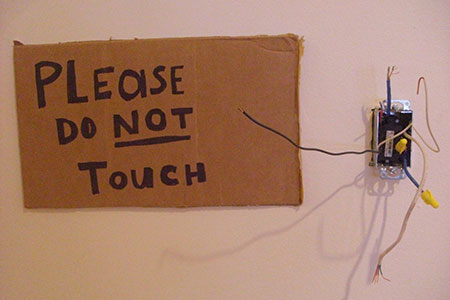 PLEASE
DO NOT
TOUCH